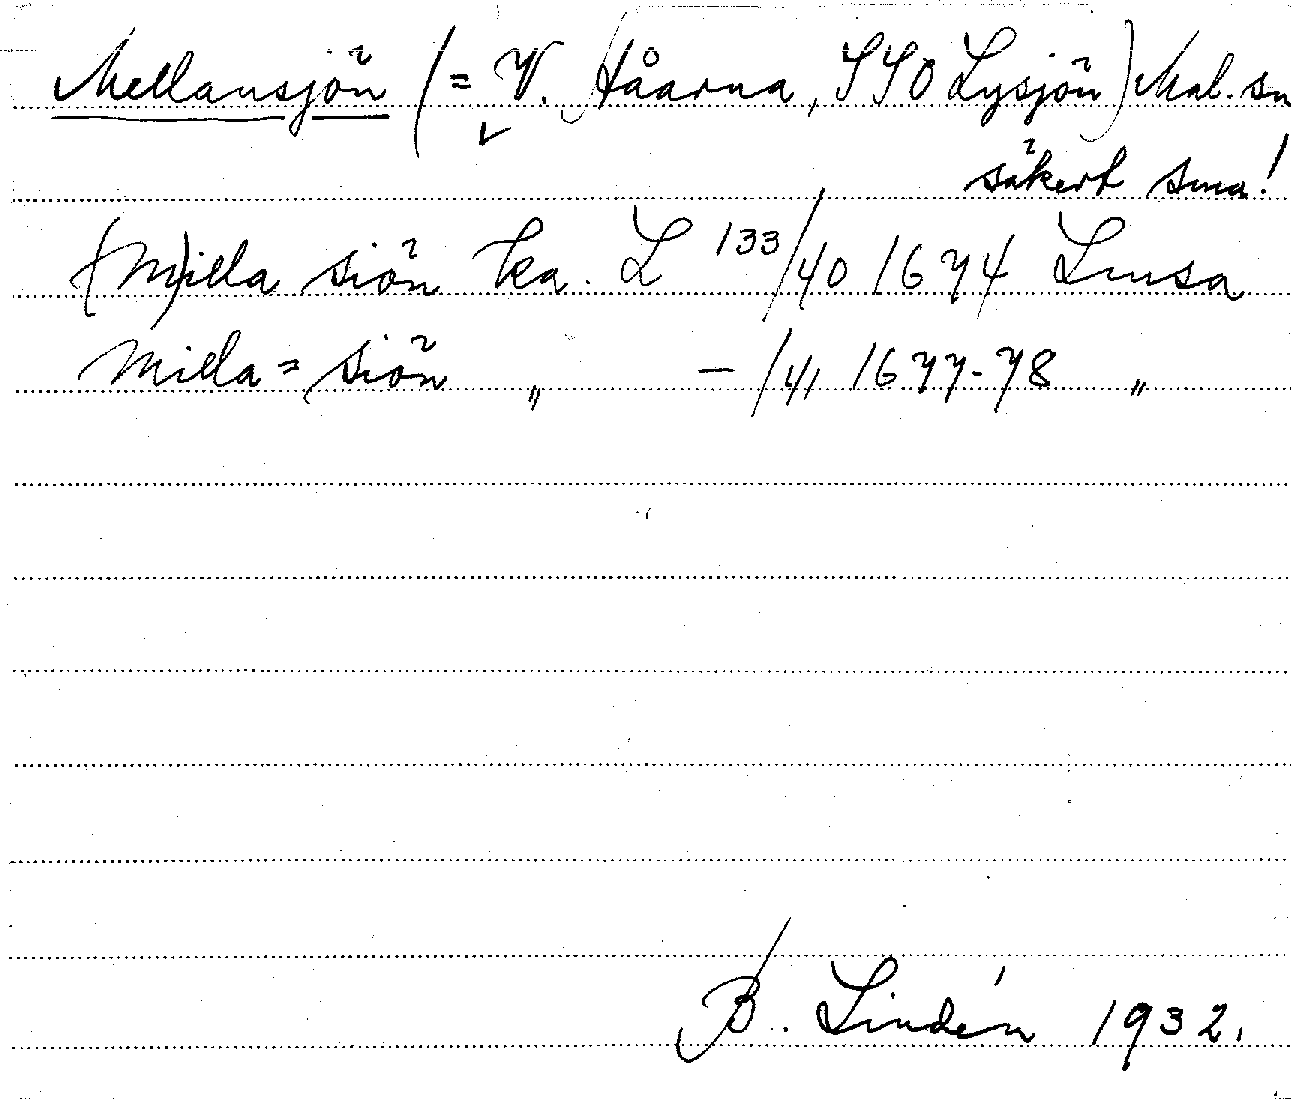 Mellansjön (= V. Håarna, SSO Lysjön) Mal. sn
säkert sma!
(M)illa siön ka. L 133/40 1674 Lmsa
Milla = siön " — /41 1677-78 "
B. Lindén 1932.